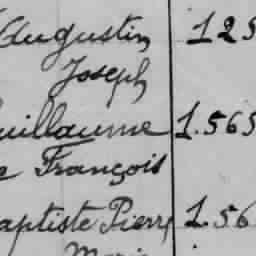 Augustin 125
Joseph
uillaume 1.565
François
aptiste Pierre 1.56